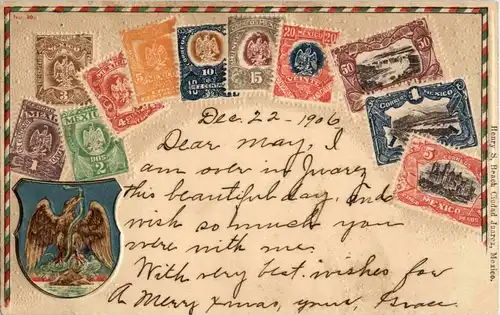 No. 30.
MEXICO
3
5
10
15
20 MEXICO 20
50 50
CORREOS 1 MEXICO
5
MEXICO
4
1
2
Dec. 22 - 1906
Dear May, I
am over in Juarez
this beautiful day, and
wish so much you
were with me.
With very best wishes for
A Merry Xmas, your, Grace.
Henry S. Beach, Ciudad Juarez, Mexico.